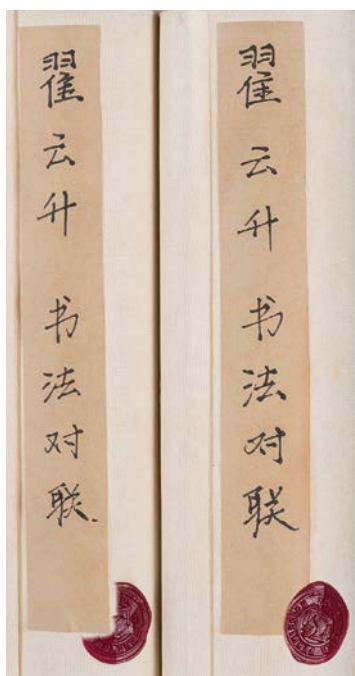 翟云升 书法对联.
翟云升 书法对联